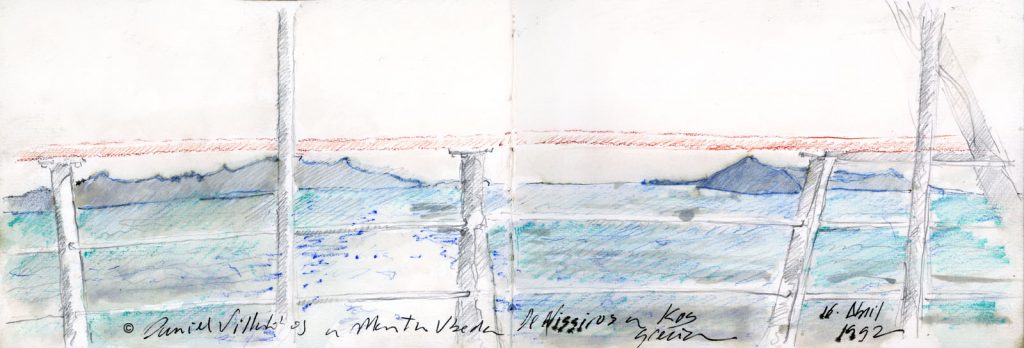 © Daniel Villalobos a Marta Úbeda De Nissiros a Kos
Grecia
16. Abril
1992